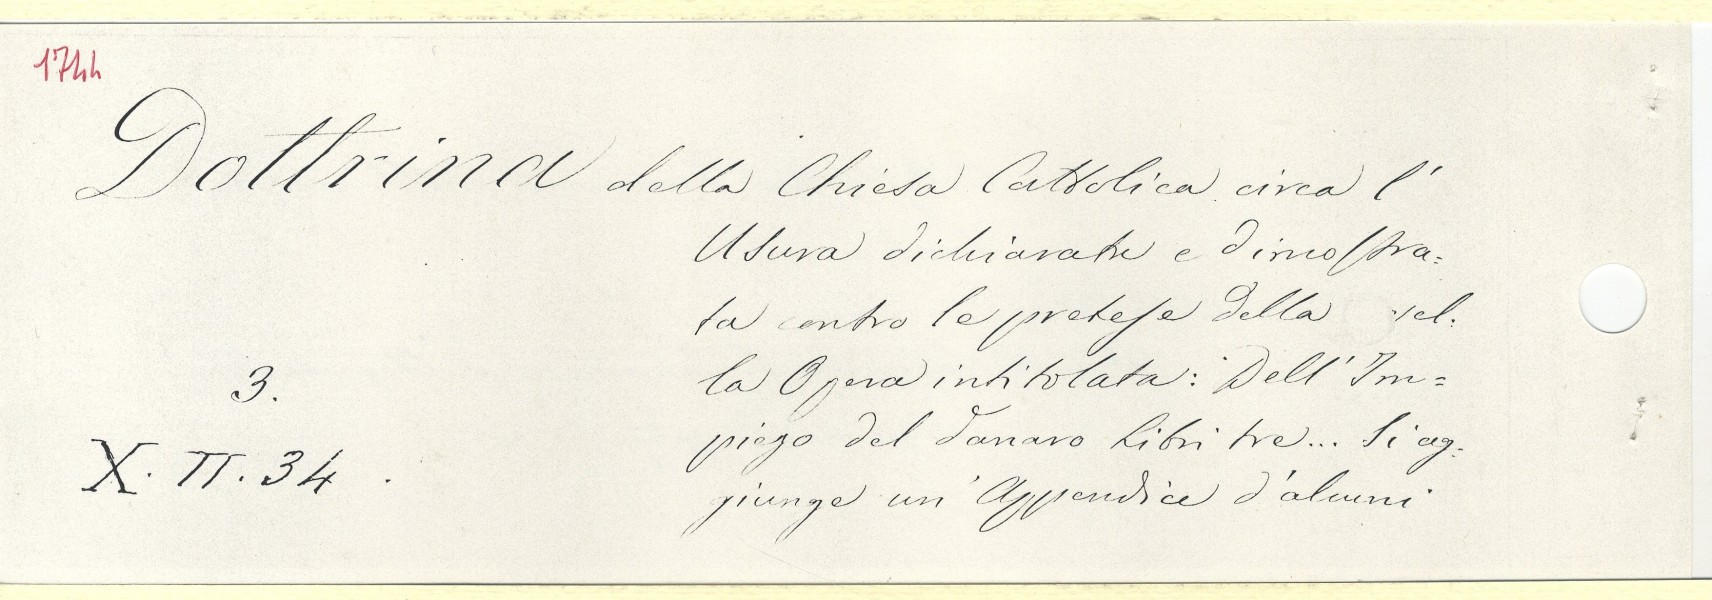 1744
Dottrina della Chiesa Cattolica circa l'
Usura dichiarata e dimostra=
ta contro le pretese della sel=
la Opera intitolata: Dell' Im=
piego del danaro Libri tre... Si ag=
giunge un' Appendice d'alcuni
3.
X. TT. 34.